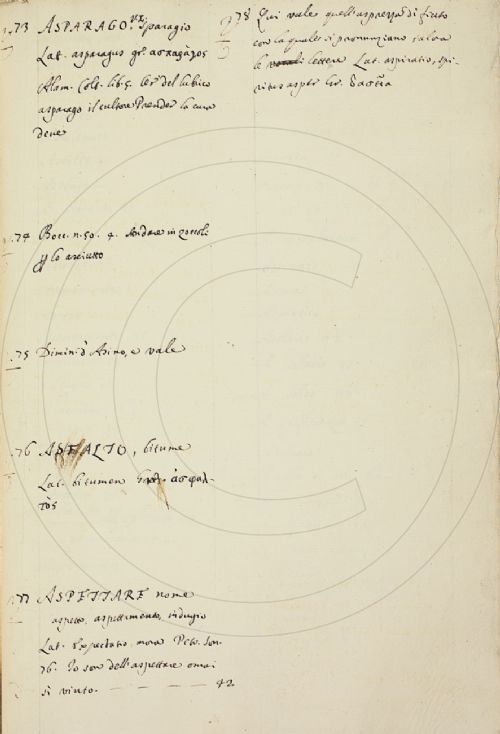 .73 ASPARAGO. V. Sparagio
Lat. asparagus gr. ασπαράγος
Alam. Colt. lib. 5. Ier. del lubrico
asparago il cultore Prender la cura
deve
.74 Bocc. n. 50. 4. Andare in zoccoli
p lo asciutto
.75 Dimin. d' Asino, e vale
.76 ASFALTO, bitume
Lat. bitumen ἀσφαλ-
τὸς
.77 ASPETTARE nome
aspetto, aspettamento, indugio
Lat. Expectatio, mora Petr. son.
76. Io son dell' aspettare omai
si vinto. 42.
.78 Qui vale quell' asprezza di fiato
con la quale si pronunziano talora
le lettere Lat. aspiratio, spi-
ritus asper Gr. δασεῖα